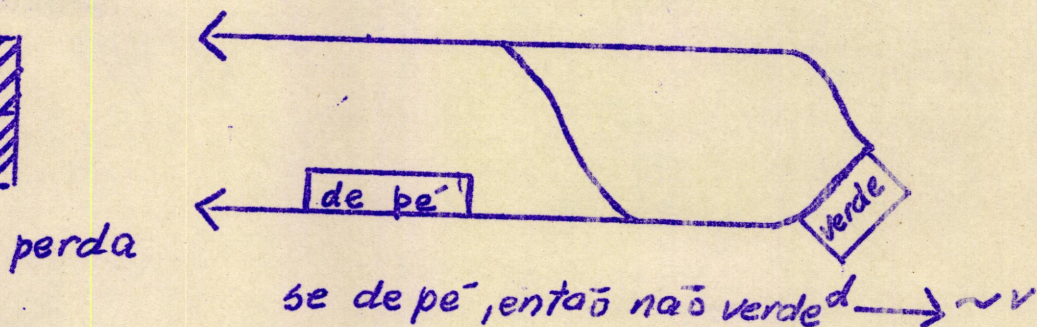 de pé
verde
perda
se de pé, então não verde d → ~v